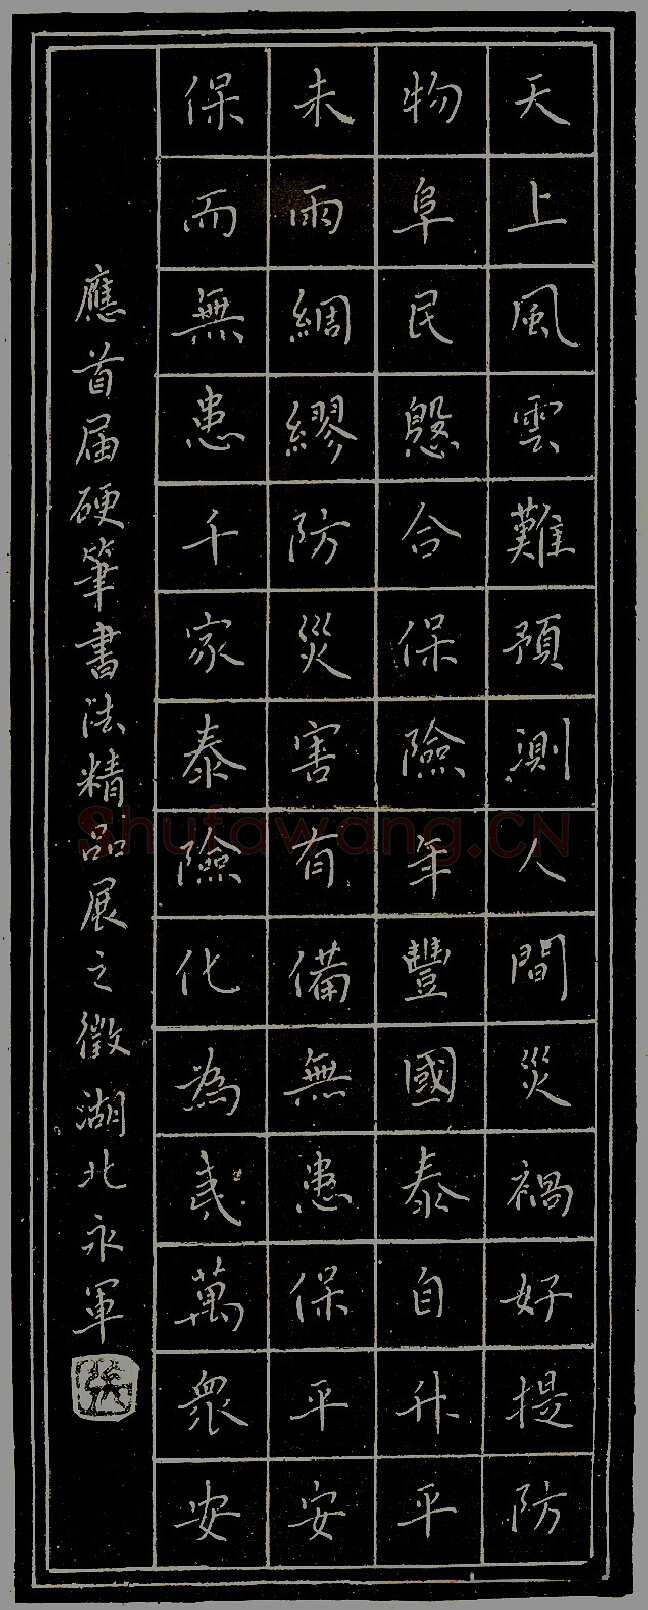 天上風雲難預測人間災禍好提防
物阜民慇合保險年豐國泰自升平
未雨綢繆防災害有備無患保平安
保而無患千家泰險化為夷萬眾安
應首届硬筆書法精品展之徵湖北永軍
張
Shufawang.CN